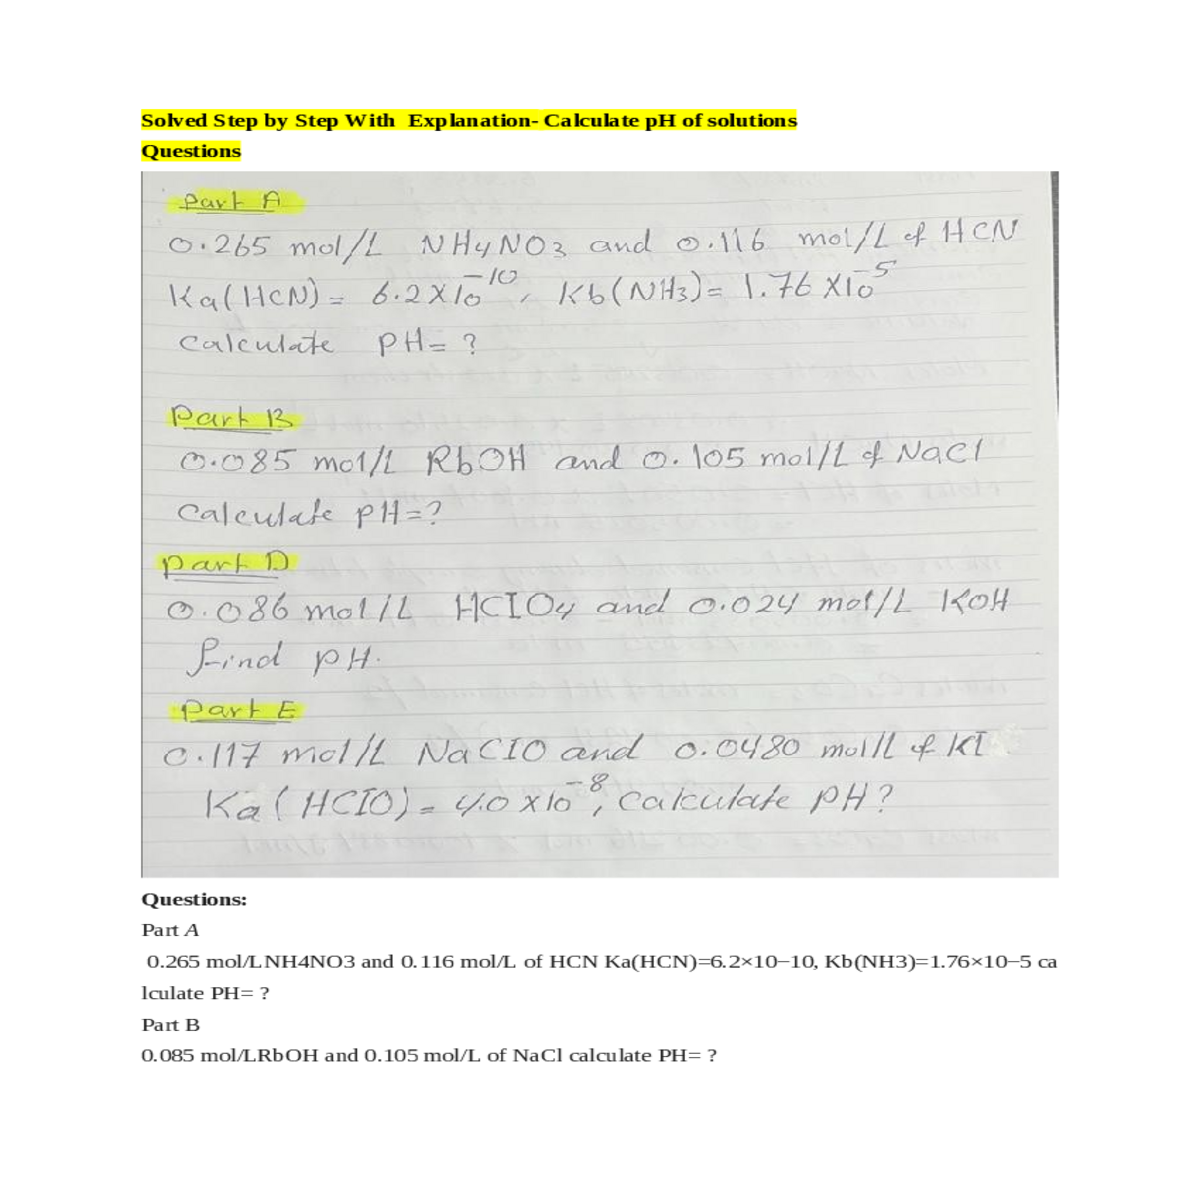 Solved Step by Step With Explanation- Calculate pH of solutions
Questions
Part A
0.265 mol/L NH4NO3 and 0.116 mol/L of HCN
Ka(HCN) = 6.2 X 10^-10, Kb(NH3) = 1.76 X10^-5
Calculate PH= ?
Part B
0.085 mol/L RbOH and 0.105 mol/L of NaCl
Calculate PH=?
part D
0.086 mol/L HClO4 and 0.024 mol/L KOH
find PH.
part E
0.117 mol/L NaClO and 0.0480 mol/L of KI
Ka(HClO) = 4.0 x 10^-8, Calculate PH?
Questions:
Part A
0.265 mol/LNH4NO3 and 0.116 mol/L of HCN Ka(HCN)=6.2×10−10, Kb(NH3)=1.76×10−5 ca
lculate PH= ?
Part B
0.085 mol/LRbOH and 0.105 mol/L of NaCl calculate PH= ?